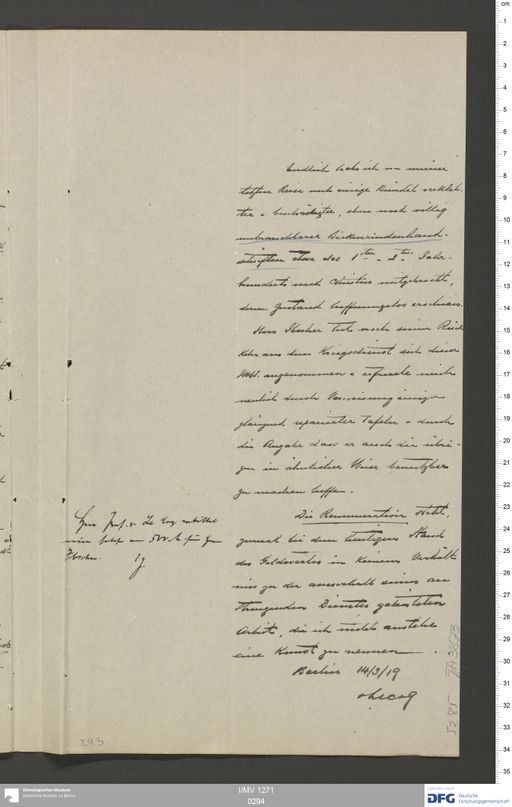 Endlich habe ich von meiner
letzten Reise noch einige Bündel verkleb-
ter u. beschädigter, eben noch völlig
unbrauchbarer Birkenrindenhand-
schriften etwa des 1ten - 2ten Jahr-
hunderts nach Christus mitgebracht,
deren Zustand hoffnungslos erschien.
Herr Ibscher hat nach seiner Rück
kehr aus dem Kriegsdienst sich dieser
Mss. angenommen u. erfreute mich
neulich durch Vorweisung einiger
glänzend reparierter Tafeln u. durch
die Angabe dass er auch die übri-
gen in ähnlicher Weise benutzbar
zu machen hoffe.
Die Remuneration steht,
zumal bei dem heutigen Stand
des Geldwertes in keinem Verhält
niss zu der ausserhalb seines an
strengenden Dienstes geleisteten
Arbeit, die ich nicht anstehe
eine Kunst zu nennen.
Berlin 14/3/19
vLecoq
Herr Prof. v. Le Coq
500 M für
Ibscher.
293
I/MV 1271
0294
Ethnologisches Museum
Staatliche Museen zu Berlin
Gefördert durch
DFG Deutsche
Forschungsgemeinschaft
cm
1
2
3
4
5
6
7
8
9
10
11
12
13
14
15
16
17
18
19
20
21
22
23
24
25
26
27
28
29
30
31
32
33
34
35